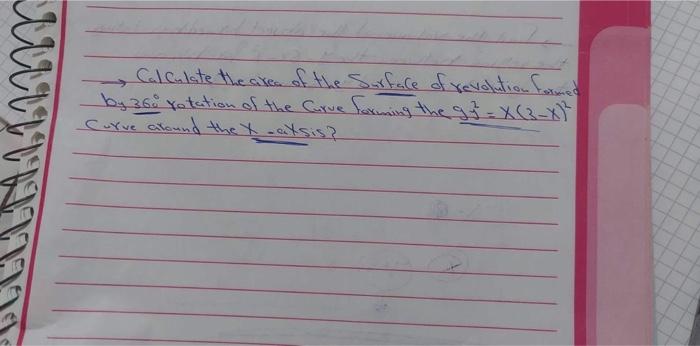 → Calculate the area of the Surface of revolution formed
by 360° rotation of the Curve forming the 9y² = x(3-x)²
Curve around the x-axsis?